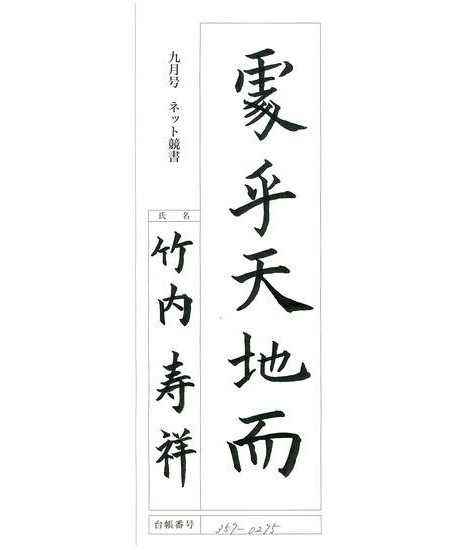 處乎天地而
九月号 ネット競書
氏名
竹内寿祥
台帳番号 357-0275